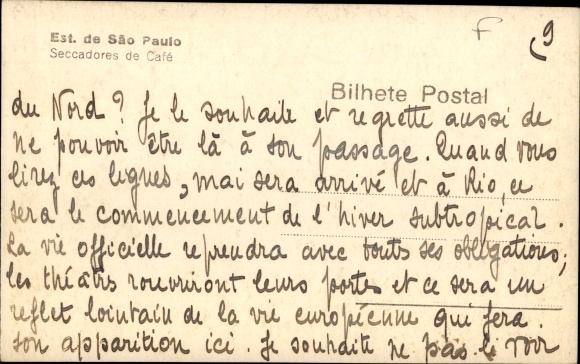 Est. de São Paulo
Seccadores de Café
F 9
Bilhete Postal
du Nord ? Je le souhaite et regrette aussi de
ne pouvoir être là à son passage. Quand vous
lirez ces lignes, mai sera arrivé et à Rio, ce
sera le commencement de l'hiver subtropical.
La vie officielle reprendra avec toutes ses obligations;
les théâtres rouvriront leurs portes et ce sera un
reflet lointain de la vie européenne qui fera.
son apparition ici. Je souhaite ne pas le voir